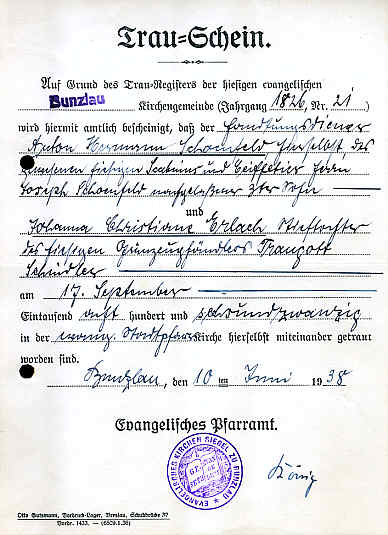 Trau=Schein.
Auf Grund des Trau=Registers der hiesigen evangelischen
Bunzlau Kirchengemeinde (Jahrgang 1826, Nr. 21)
wird hiermit amtlich bescheinigt, daß der Handlungsdiener
Anton Hermann Schoenfeld hierselbst, des
gewesenen hiesigen Herrn
Joseph Schoenfeld nachgelaßener 2ter Sohn
und
Johanna Christiane Erlach Stieftochter
des hiesigen Grünzeughändlers Traugott
Schindler
am 17. September
Eintausend acht hundert und sechsundzwanzig
in der evang. Stadtpfarrkirche hierselbst miteinander getraut
worden sind.
Bunzlau, den 10 ten Juni 1938
Evangelisches Pfarramt.
EVANGELISCHES KIRCHEN SIEGEL ZU BUNZLAU
König
Otto Gutsmann, Vordruck-Lager, Breslau, Schuhbrücke 77
Vordr. 1433. — (6509.1.38)